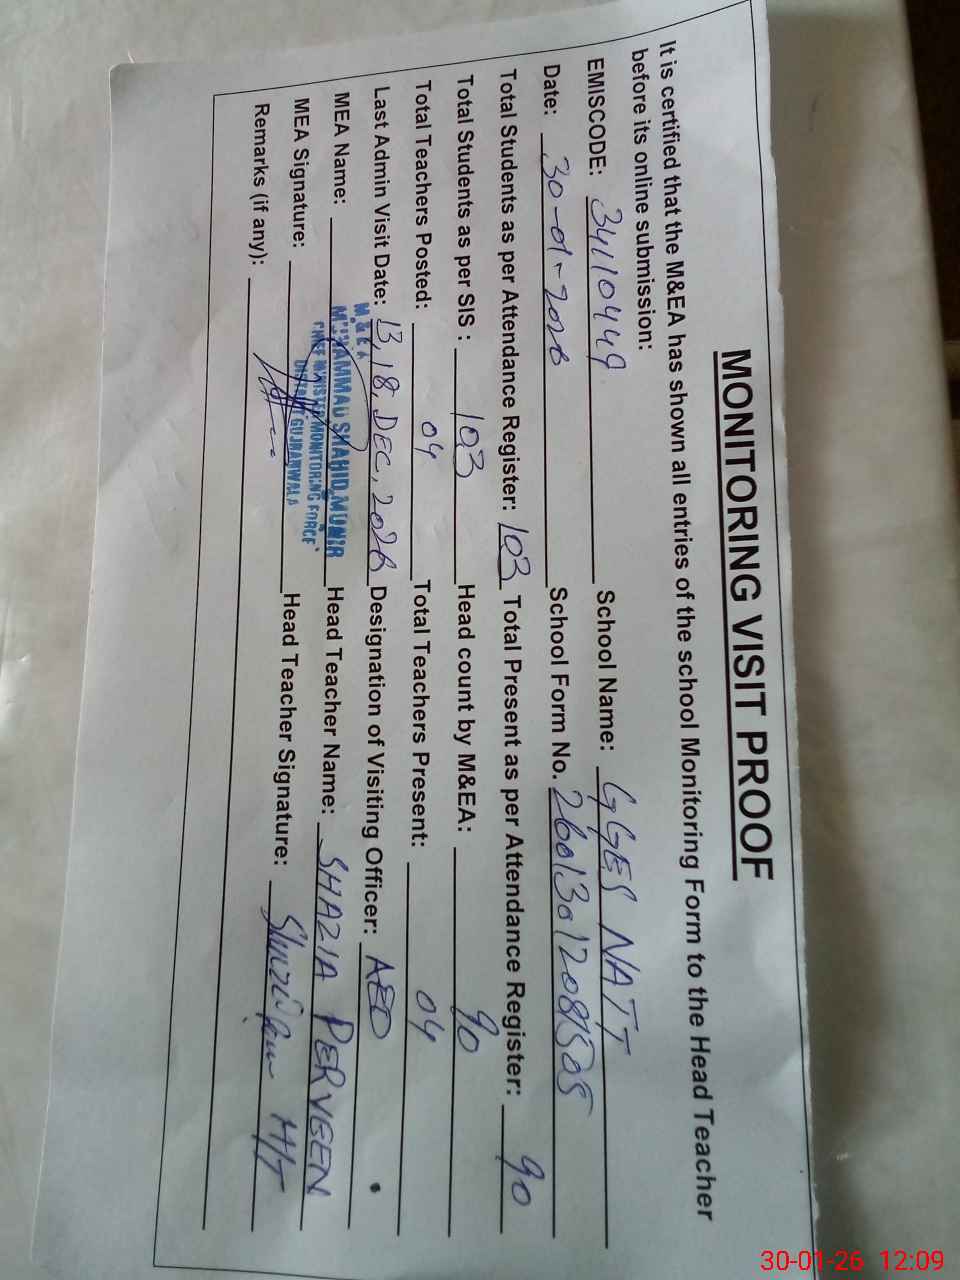 MONITORING VISIT PROOF
It is certified that the M&EA has shown all entries of the school Monitoring Form to the Head Teacher
before its online submission:
EMISCODE: 34110449 School Name: GGES NATT
Date: 30-01-2026 School Form No. 26013012081505
Total Students as per Attendance Register: 103 Total Present as per Attendance Register: 90
Total Students as per SIS : 103 Head count by M&EA: 90
Total Teachers Posted: 04 Total Teachers Present: 04
Last Admin Visit Date: 13, 18, DEC, 2026 Designation of Visiting Officer: AEO
MEA Name: Head Teacher Name: SHAZIA PERVEEN
M & E A
MUHAMMAD SHAHID MUNIR
CHIEF MINISTER MONITORING FORCE
DISTRICT GUJRANWALA
MEA Signature: Head Teacher Signature: H/T
Remarks (if any):
30-01-26 12:09